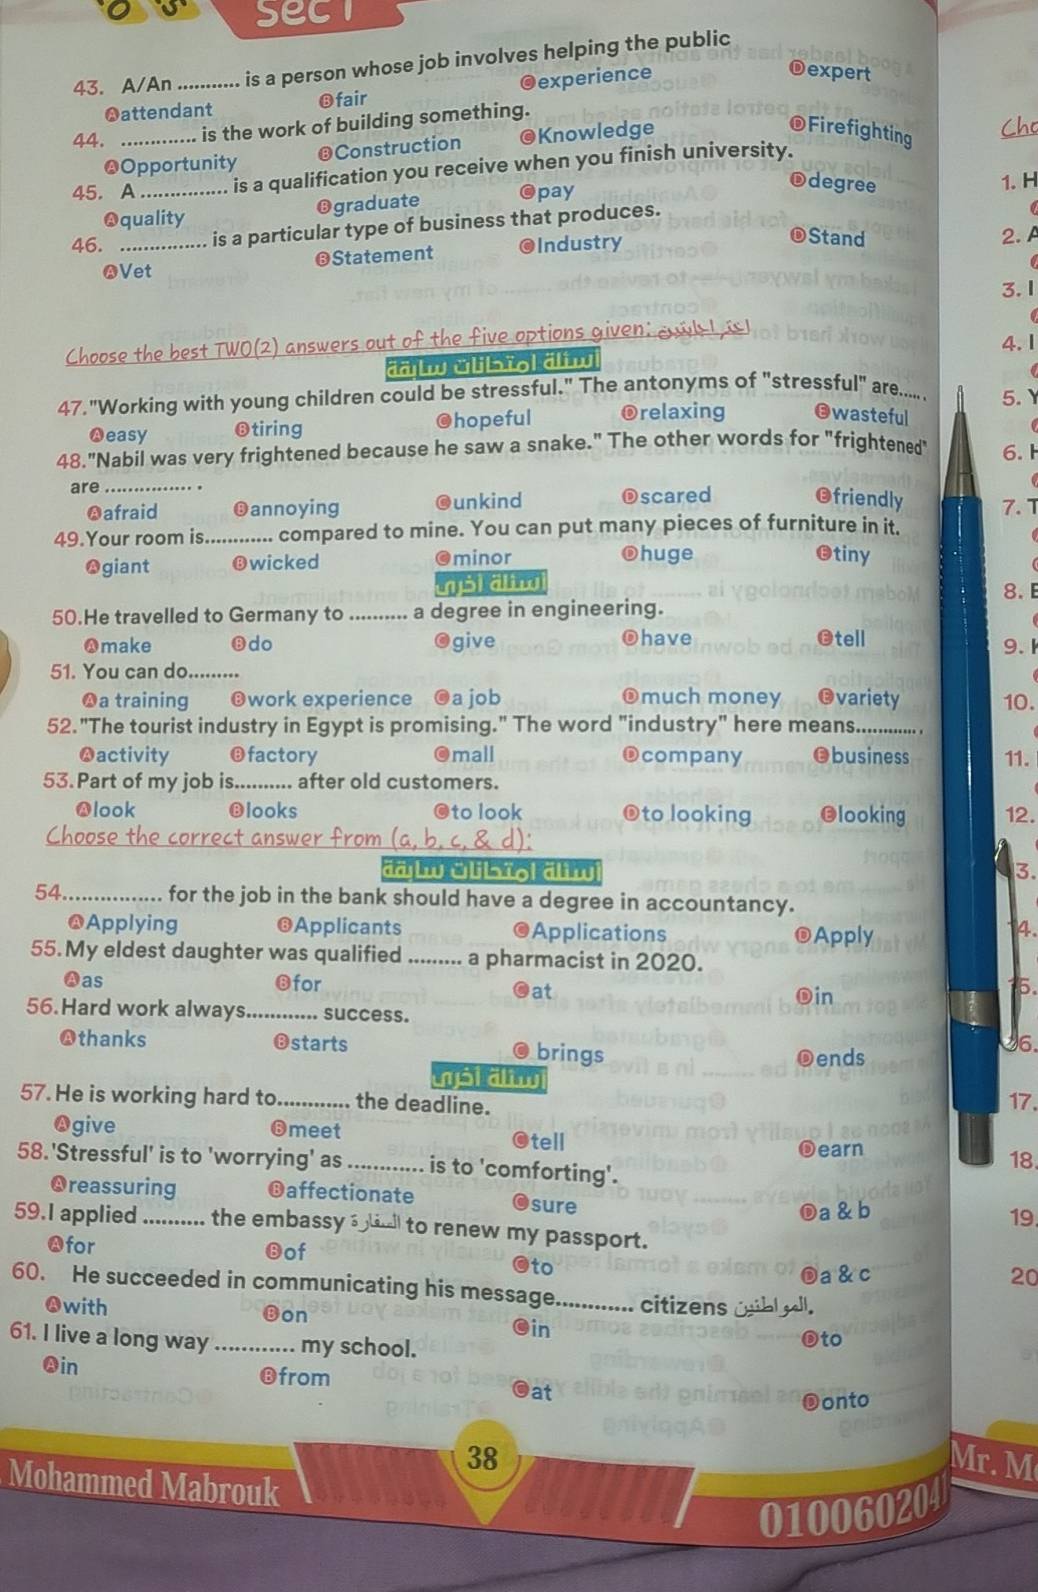 sec 1
43. A/An ........... is a person whose job involves helping the public
Ⓐattendant Ⓑfair Ⓒexperience Ⓓexpert
44. ............. is the work of building something.
ⒶOpportunity ⒷConstruction ⒸKnowledge ⒹFirefighting
45. A ............... is a qualification you receive when you finish university.
Ⓐquality Ⓑgraduate Ⓒpay Ⓓdegree
46. ............... is a particular type of business that produces.
ⒶVet ⒷStatement ⒸIndustry ⒹStand
Choose the best TWO(2) answers out of the five options given: اختر إجابتين
أسئلة امتحانات سابقة
47."Working with young children could be stressful." The antonyms of "stressful" are......
Ⓐeasy Ⓑtiring Ⓒhopeful Ⓓrelaxing Ⓔwasteful
48."Nabil was very frightened because he saw a snake." The other words for "frightened"
are ............... .
Ⓐafraid Ⓑannoying Ⓒunkind Ⓓscared Ⓔfriendly
49.Your room is............ compared to mine. You can put many pieces of furniture in it.
Ⓐgiant Ⓑwicked Ⓒminor Ⓓhuge Ⓔtiny
أسئلة أخرى
50.He travelled to Germany to .......... a degree in engineering.
Ⓐmake Ⓑdo Ⓒgive Ⓓhave Ⓔtell
51. You can do.........
Ⓐa training Ⓑwork experience Ⓒa job Ⓓmuch money Ⓔvariety
52."The tourist industry in Egypt is promising." The word "industry" here means............. .
Ⓐactivity Ⓑfactory Ⓒmall Ⓓcompany Ⓔbusiness
53.Part of my job is.......... after old customers.
Ⓐlook Ⓑlooks Ⓒto look Ⓓto looking Ⓔlooking
Choose the correct answer from (a, b, c, & d):
أسئلة امتحانات سابقة
54................. for the job in the bank should have a degree in accountancy.
ⒶApplying ⒷApplicants ⒸApplications ⒹApply
55.My eldest daughter was qualified ......... a pharmacist in 2020.
Ⓐas Ⓑfor Ⓒat Ⓓin
56.Hard work always............ success.
Ⓐthanks Ⓑstarts Ⓒ brings Ⓓends
أسئلة أخرى
57.He is working hard to............ the deadline.
Ⓐgive Ⓑmeet Ⓒtell Ⓓearn
58.'Stressful' is to 'worrying' as ............ is to 'comforting'.
Ⓐreassuring Ⓑaffectionate Ⓒsure Ⓓa & b
59.I applied .......... the embassy السفارة to renew my passport.
Ⓐfor Ⓑof Ⓒto Ⓓa & c
60. He succeeded in communicating his message............. citizens المواطنين.
Ⓐwith Ⓑon Ⓒin Ⓓto
61. I live a long way ............ my school.
Ⓐin Ⓑfrom Ⓒat Ⓓonto
38
Mohammed Mabrouk
Mr. M
1. H
2. A
3. I
4. I
5. Y
7. T
10.
11.
12.
17.
18.
19.
20